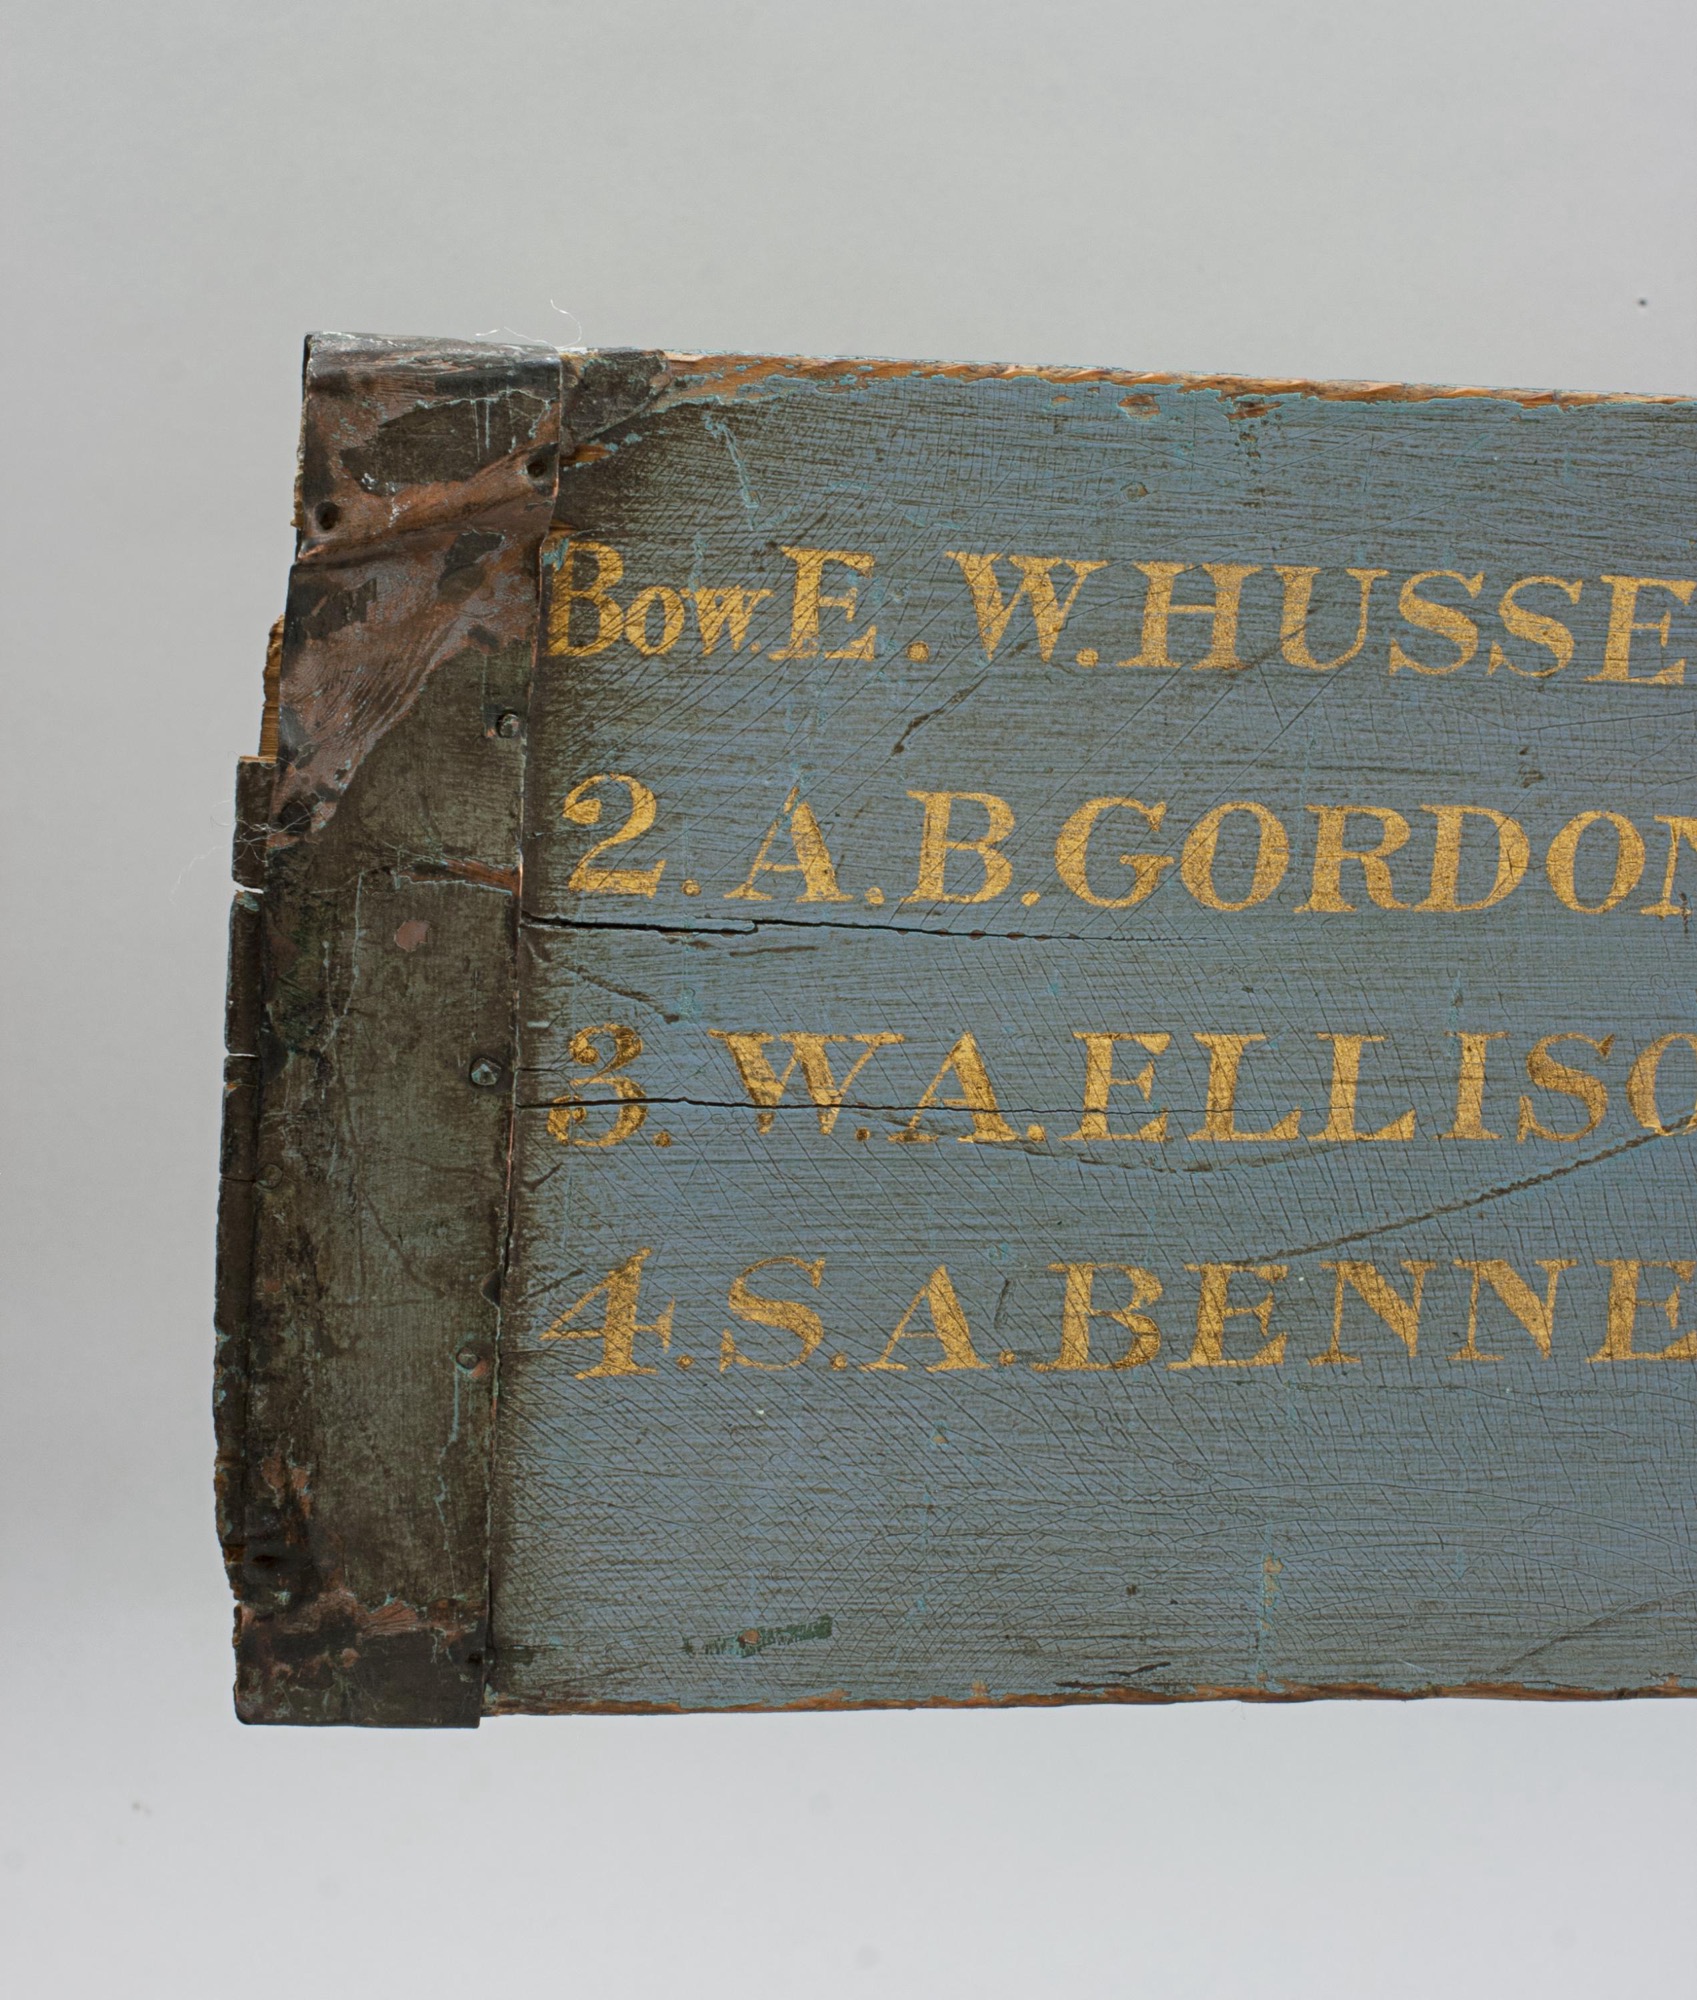 Bow. E. W. HUSSE
2. A. B. GORDON
3. W. A. ELLISO
4. S. A. BENNE